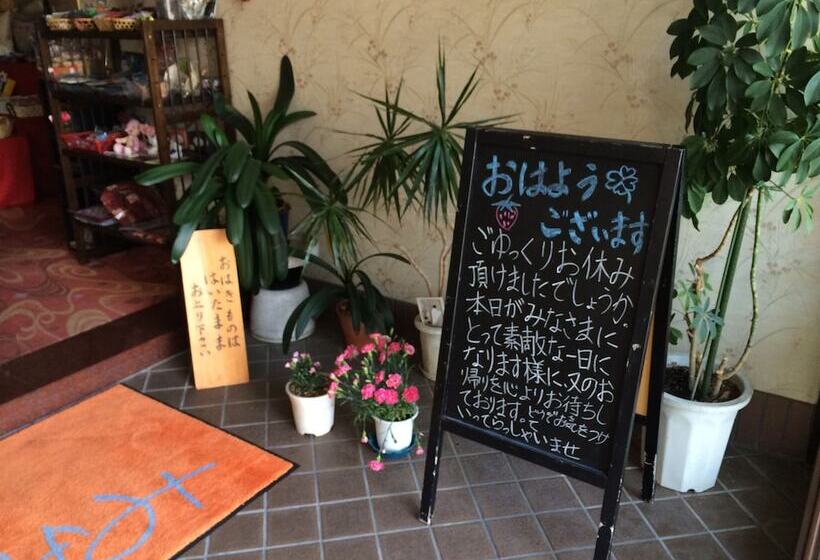 おはよう
ございます
ごゆっくりお休み
頂けましたでしょうか。
本日がみなさまに
とって素敵な一日に
なります様に・又のお
帰りを心よりお待ちし
ております。どうぞお気をつけ
いってらっしゃいませ
おはきものは
はいたまま
お上り下さい